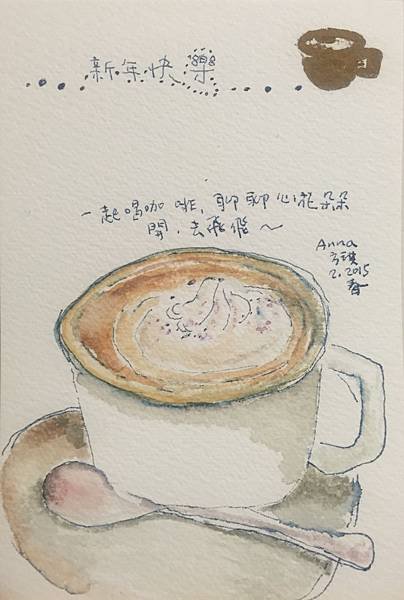 新年快樂
一起喝咖啡,聊聊心花朵朵
開,去飛飛~
Anna
2.2015
春